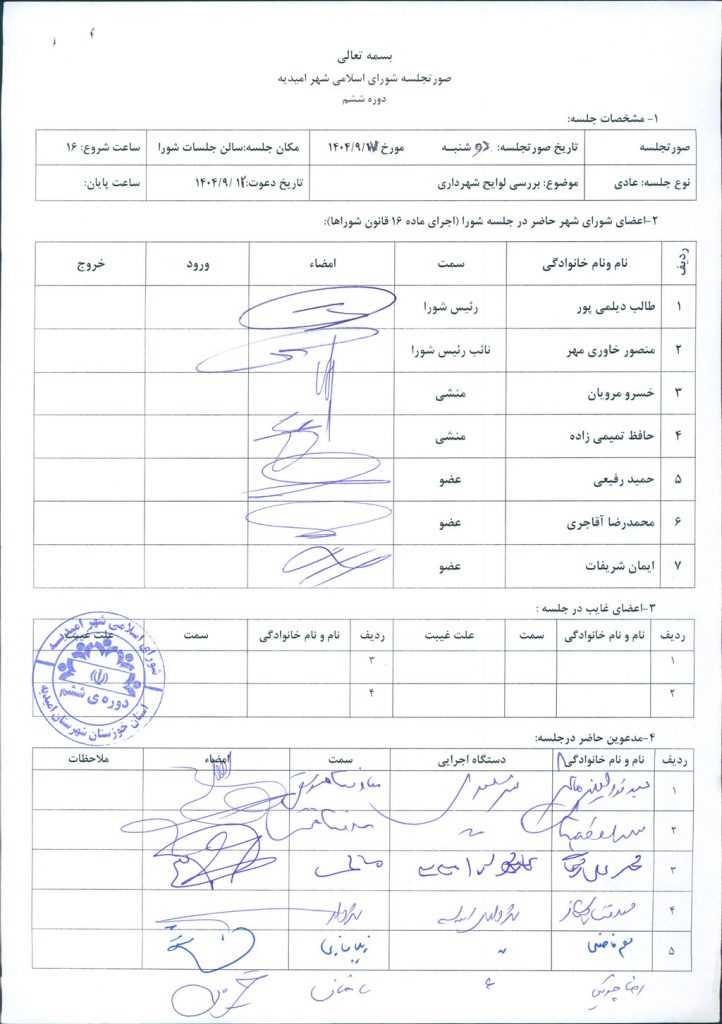 بسمه تعالی
صورتجلسه شورای اسلامی شهر امیدیه
دوره ششم
۱- مشخصات جلسه:
صورتجلسه تاریخ صورتجلسه: دو شنبـه مورخ ۱۴۰۴/۹/۱۷ مکان جلسه:سالن جلسات شورا ساعت شروع: ۱۶
نوع جلسه: عادی موضوع: بررسی لوایح شهرداری تاریخ دعوت:۱۴۰۴/۹/۱۲ ساعت پایان:
۲-اعضای شورای شهر حاضر در جلسه شورا (اجرای ماده ۱۶ قانون شوراها):
ردیف نام ونام خانوادگی سمت امضاء ورود خروج
۱ طالب دیلمی پور رئیس شورا
۲ منصور خاوری مهر نائب رئیس شورا
۳ خسرو مرویان منشی
۴ حافظ تمیمی زاده منشی
۵ حمید رفیعی عضو
۶ محمدرضا آقاجری عضو
۷ ایمان شریفات عضو
۳-اعضای غایب در جلسه :
ردیف نام و نام خانوادگی سمت علت غیبت ردیف نام و نام خانوادگی سمت علت غیبت
۱ ۳
۲ ۴
شورای اسلامی شهر امیدیه
دوره ی ششم
استان خوزستان شهرستان امیدیه
۴-مدعوین حاضر درجلسه:
ردیف نام و نام خانوادگی دستگاه اجرایی سمت امضاء ملاحظات
۱
۲
۳ مالی
۴
۵
رضا